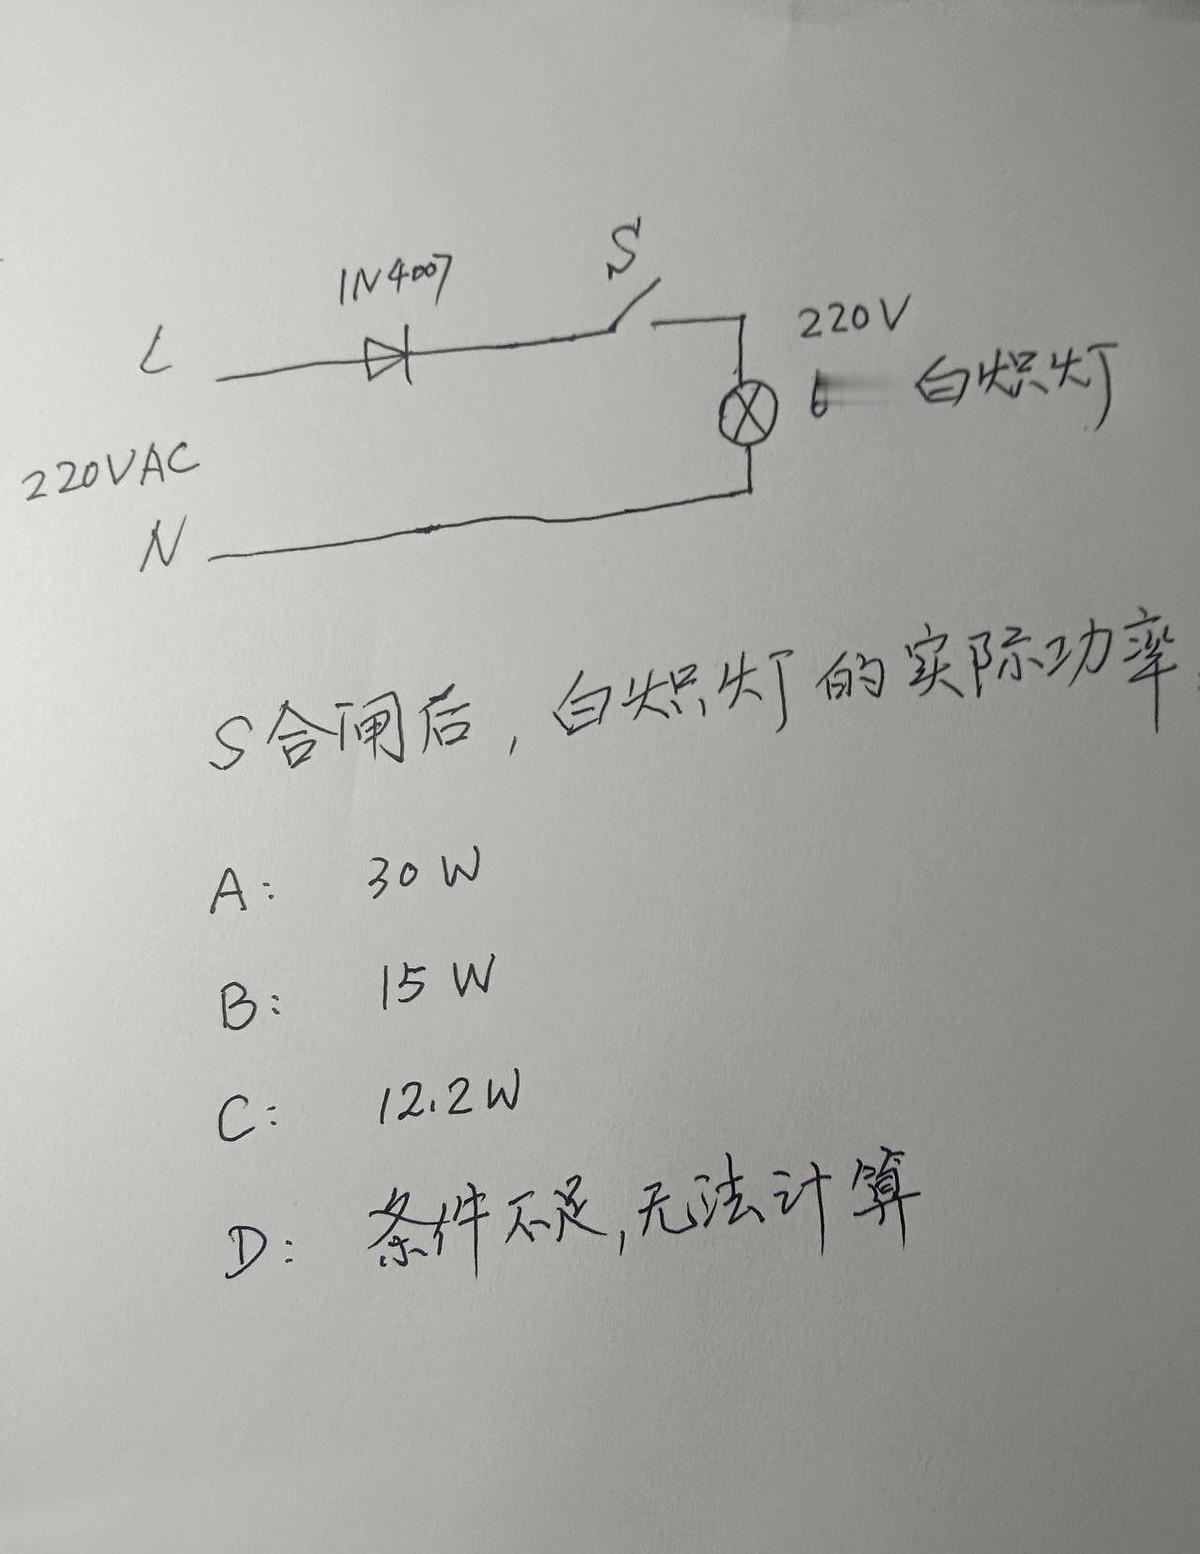 1N4007
S
L
220V
白炽灯
220VAC
N
S合闸后，白炽灯的实际功率
A: 30W
B: 15W
C: 12.2W
D: 条件不足,无法计算